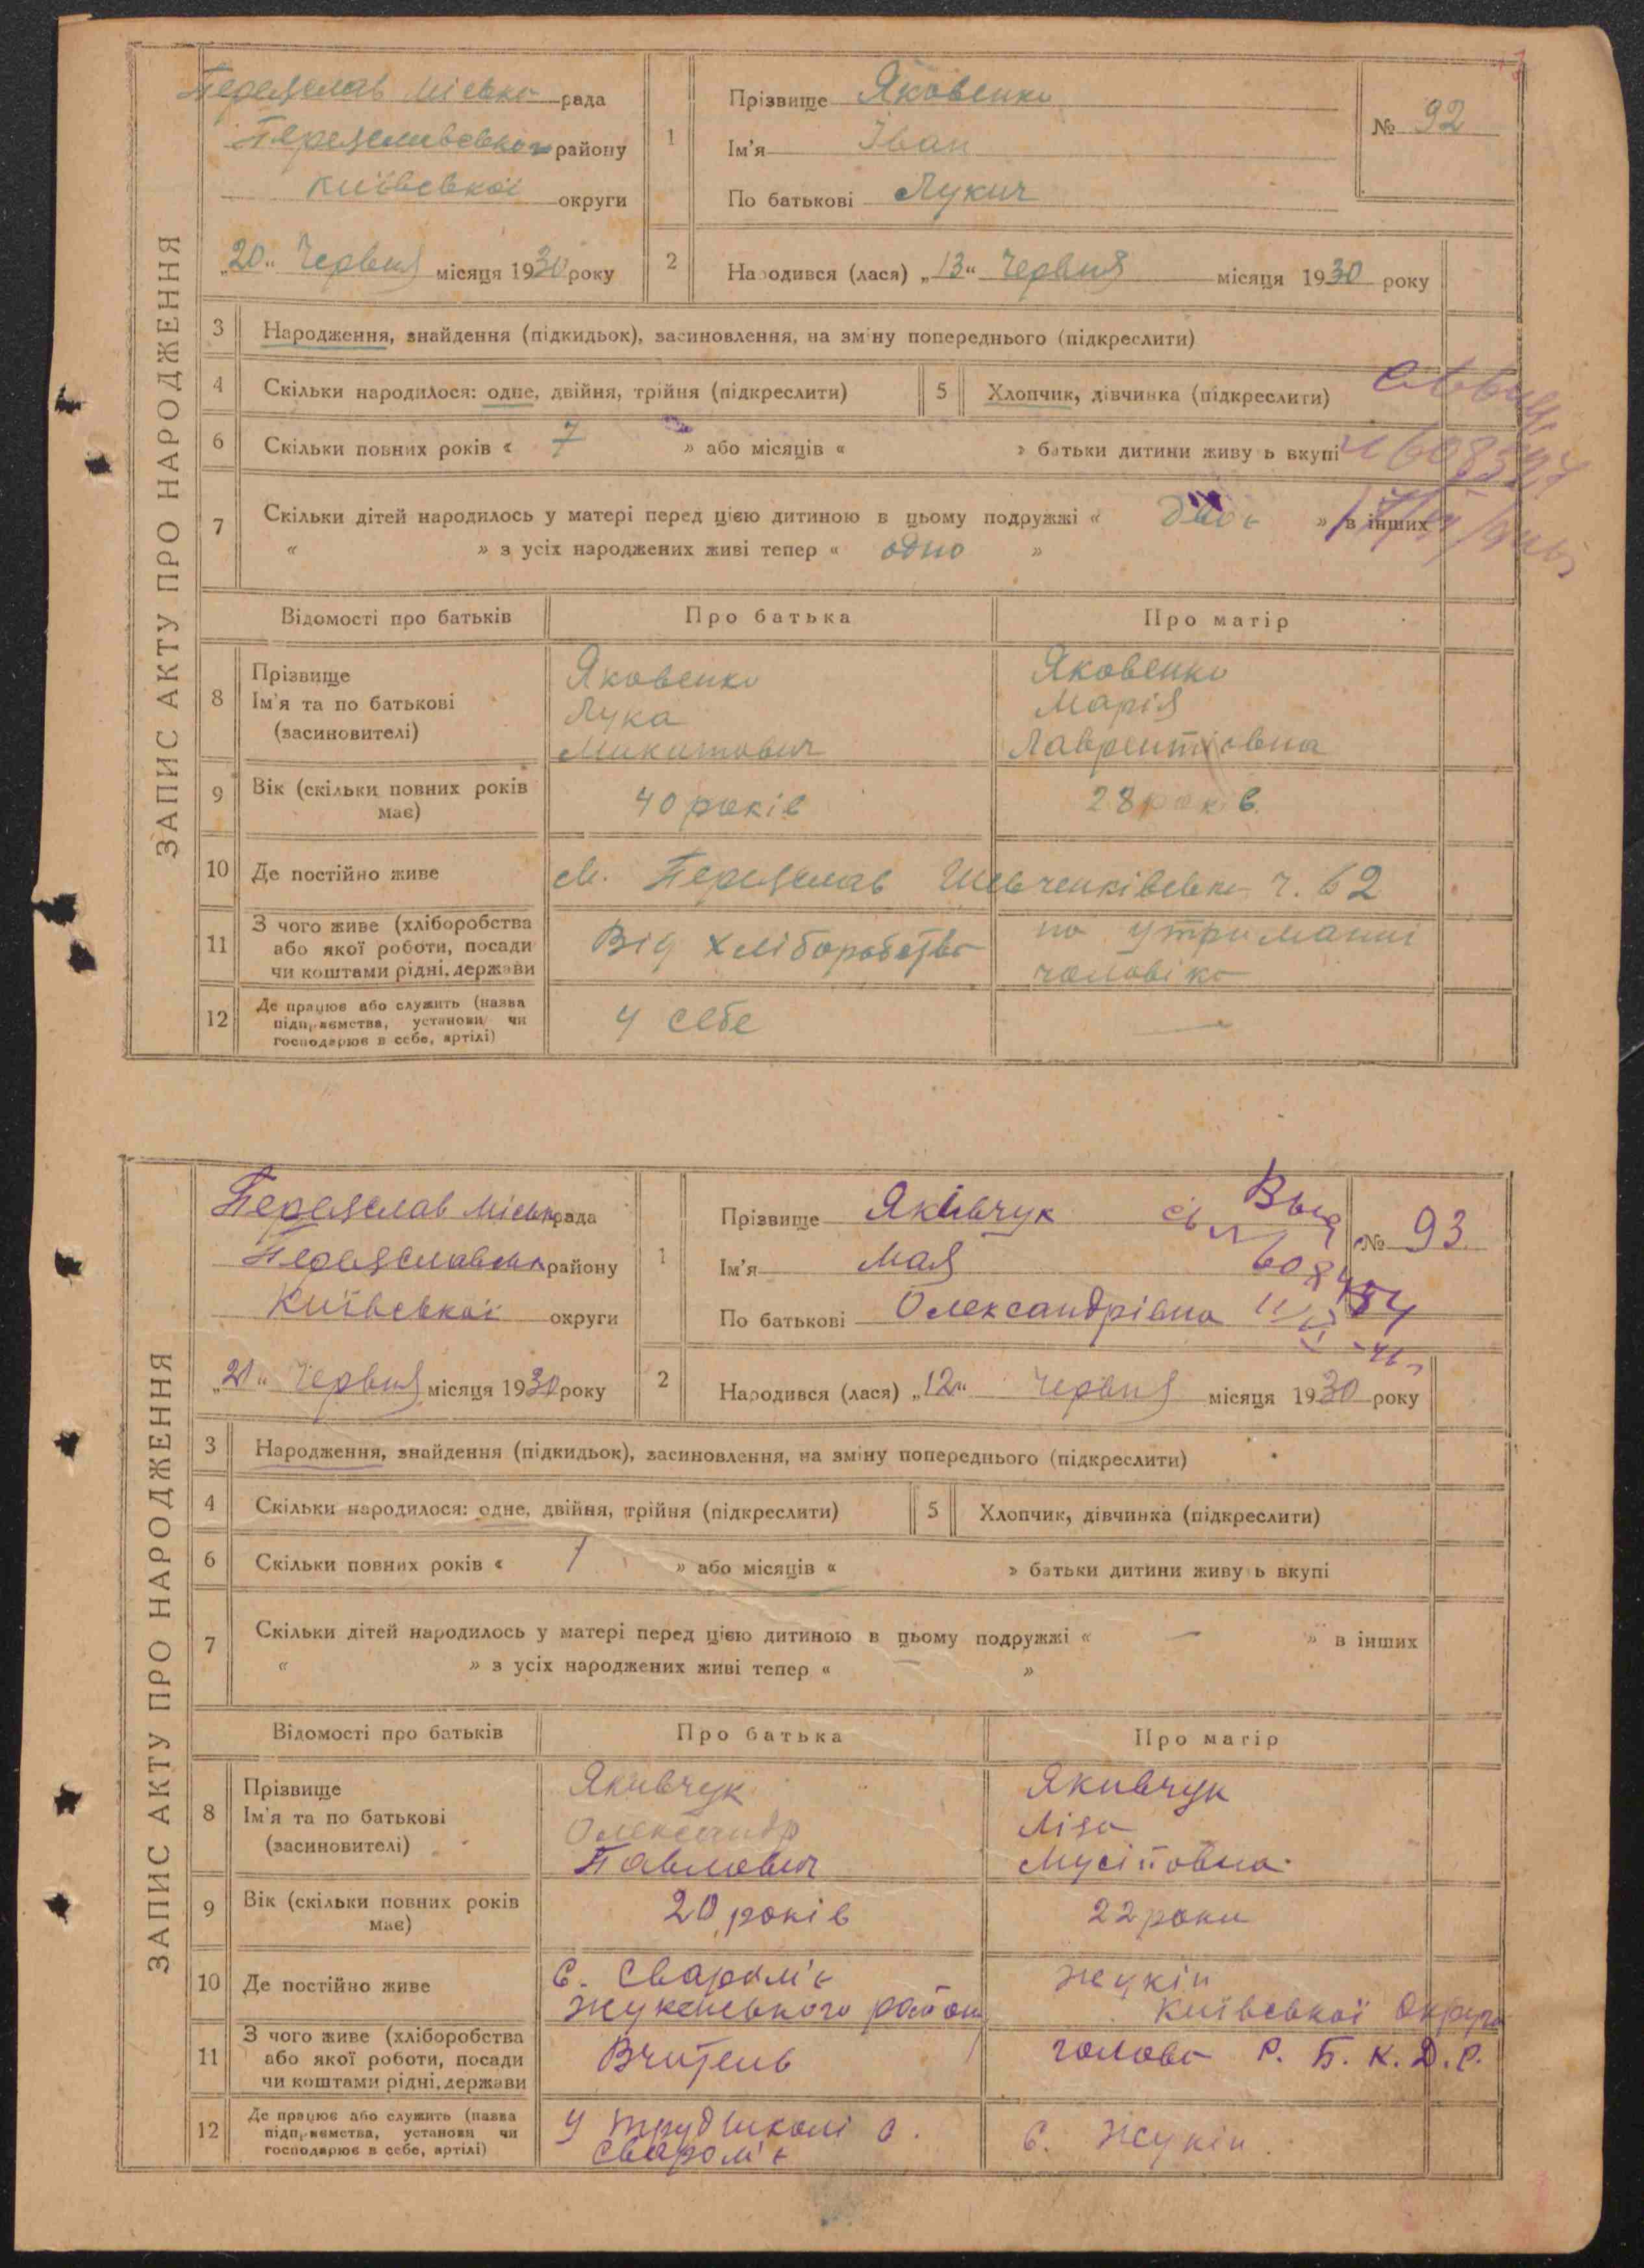 ЗАПИС АКТУ ПРО НАРОДЖЕННЯ
Переяслав Міська рада
Переяславського району
Київської округи
"20" Червня місяця 1930 року
1
Прізвище Яковенко
Ім'я Іван
По батькові Лукич
№ 92
2
Народився (лася) "13" Червня місяця 1930 року
3 Народження, знайдення (підкидьок), засиновлення, на зміну попереднього (підкреслити)
4 Скільки народилося: одне, двійня, трійня (підкреслити)
5 Хлопчик, дівчинка (підкреслити)
6 Скільки повних років « 7 » або місяців « » батьки дитини живуть вкупі
7 Скільки дітей народилось у матері перед цією дитиною в цьому подружжі « двоє » в інших
« » з усіх народжених живі тепер « одно »
Відомості про батьків Про батька Про матір
8 Прізвище Яковенко Яковенко
Ім'я та по батькові Лука Марія
(засиновителі) Микитович Лаврентіовна
9 Вік (скільки повних років має) 40 років 28 років.
10 Де постійно живе м. Переяслав Шевченківська ч. 62
11 З чого живе (хліборобства
або якої роботи, посади
чи коштами рідні, держави
Від хліборобства
на утриманні
чоловіка
12 Де працює або служить (назва
підприємства, установи чи
господарює в себе, артілі)
У себе —
ЗАПИС АКТУ ПРО НАРОДЖЕННЯ
Переяслав Міськ рада
Переяславськ району
Київської округи
"21" Червня місяця 1930 року
1
Прізвище Якивчук
Ім'я Мая
По батькові Олександрівна
№ 93
2
Народився (лася) "12" Червня місяця 1930 року
3 Народження, знайдення (підкидьок), засиновлення, на зміну попереднього (підкреслити)
4 Скільки народилося: одне, двійня, трійня (підкреслити)
5 Хлопчик, дівчинка (підкреслити)
6 Скільки повних років « 1 » або місяців « » батьки дитини живуть вкупі
7 Скільки дітей народилось у матері перед цією дитиною в цьому подружжі « — » в інших
« » з усіх народжених живі тепер « — »
Відомості про батьків Про батька Про матір
8 Прізвище Якивчук Якивчук
Ім'я та по батькові Олександр Ліза
(засиновителі) Павлович Мусіповна
9 Вік (скільки повних років має) 20 років 22 роки
10 Де постійно живе
С. Сваром'є
Жукинського району
Жукін
Київської Округи
11 З чого живе (хліборобства
або якої роботи, посади
чи коштами рідні, держави
Вчитель
голова Р. Б. К. Д. Р.
12 Де працює або служить (назва
підприємства, установи чи
господарює в себе, артілі)
У трудшколі с.
Сваром'є
с. Жукін.